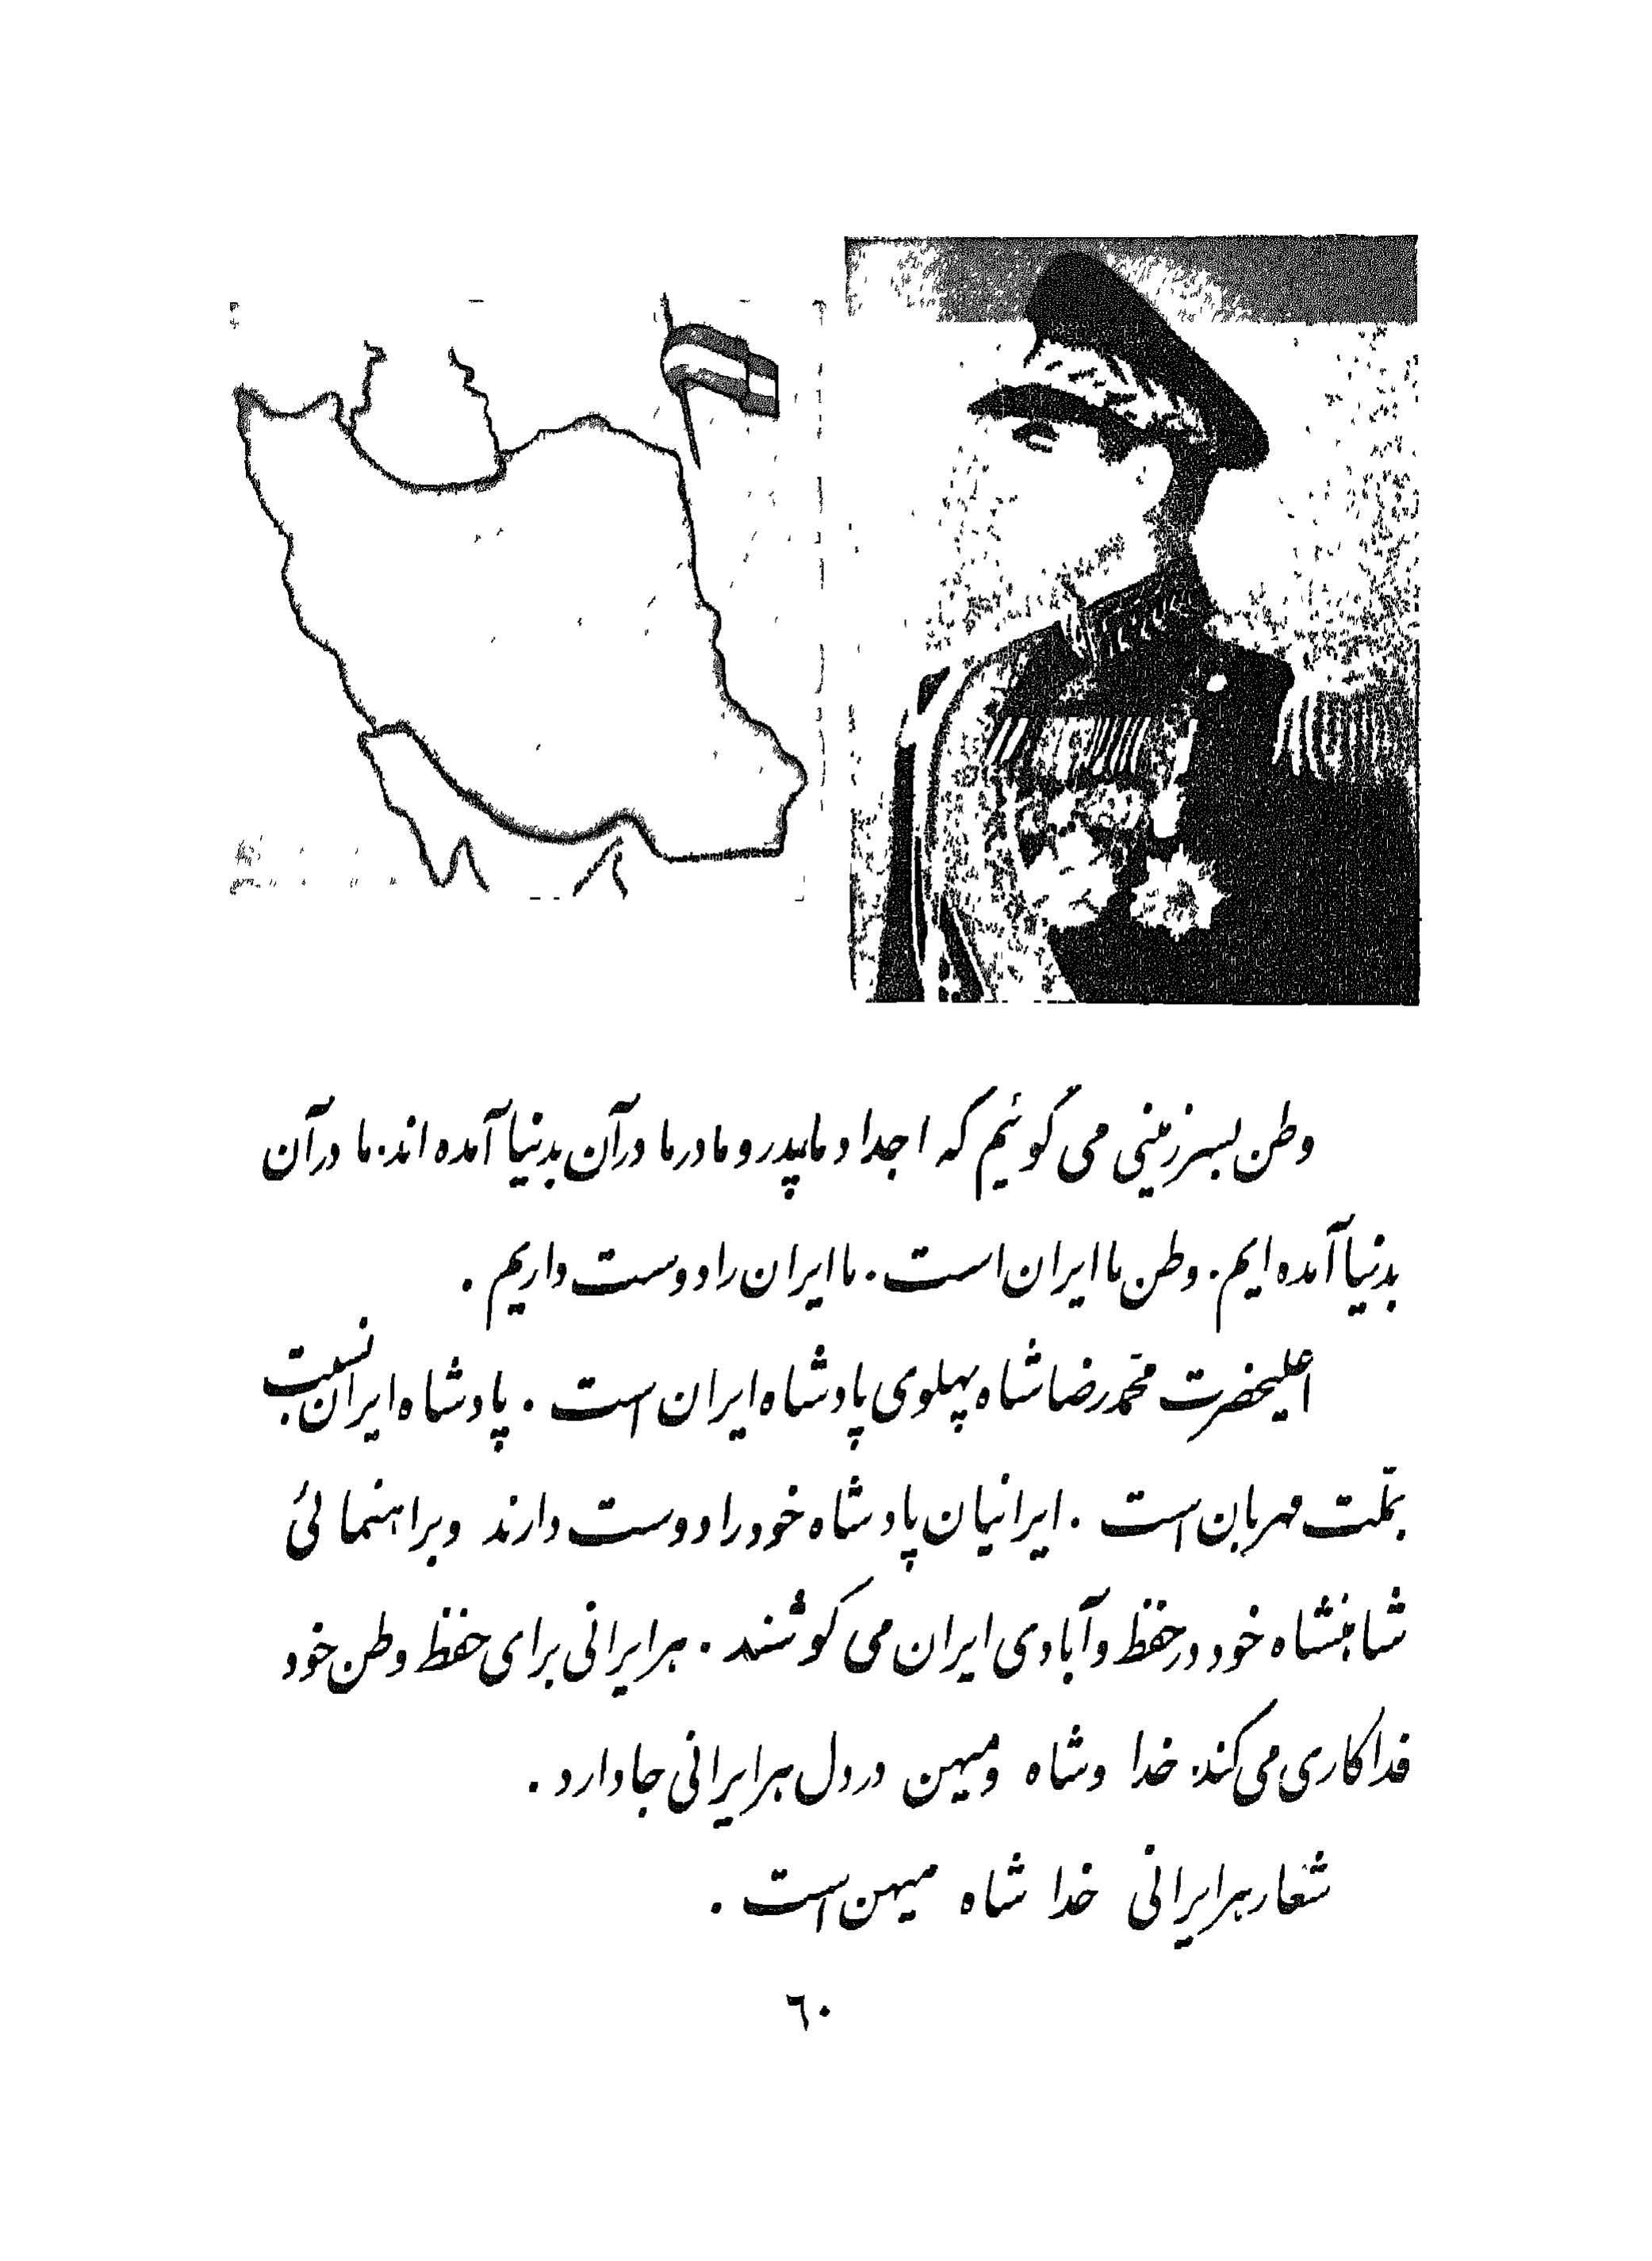 وطن بسرزمینی می گوئیم که اجداد ما پدر و مادر ما در آن بدنیا آمده اند. ما در آن
بدنیا آمده ایم. وطن ما ایران است. ما ایران را دوست داریم.
اعلیحضرت محمّدرضا شاه پهلوی پادشاه ایران است. پادشاه ایران نسبت
بملّت مهربان است. ایرانیان پادشاه خود را دوست دارند و براهنمائی
شاهنشاه خود در حفظ و آبادی ایران می کوشند. هر ایرانی برای حفظ وطن خود
فداکاری می کند. خدا و شاه و میهن در دل هر ایرانی جا دارد.
شعار هر ایرانی خدا شاه میهن است.
٦٠